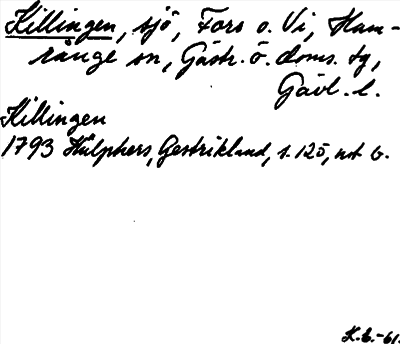 Killingen, sjö, Fors o. Vi, Ham-
rånge sn, Gästr. ö. doms. tg,
Gävl. l.
Killingen
1793 Hülphers, Gestrikland, s. 125, not b.
K.b.-61.